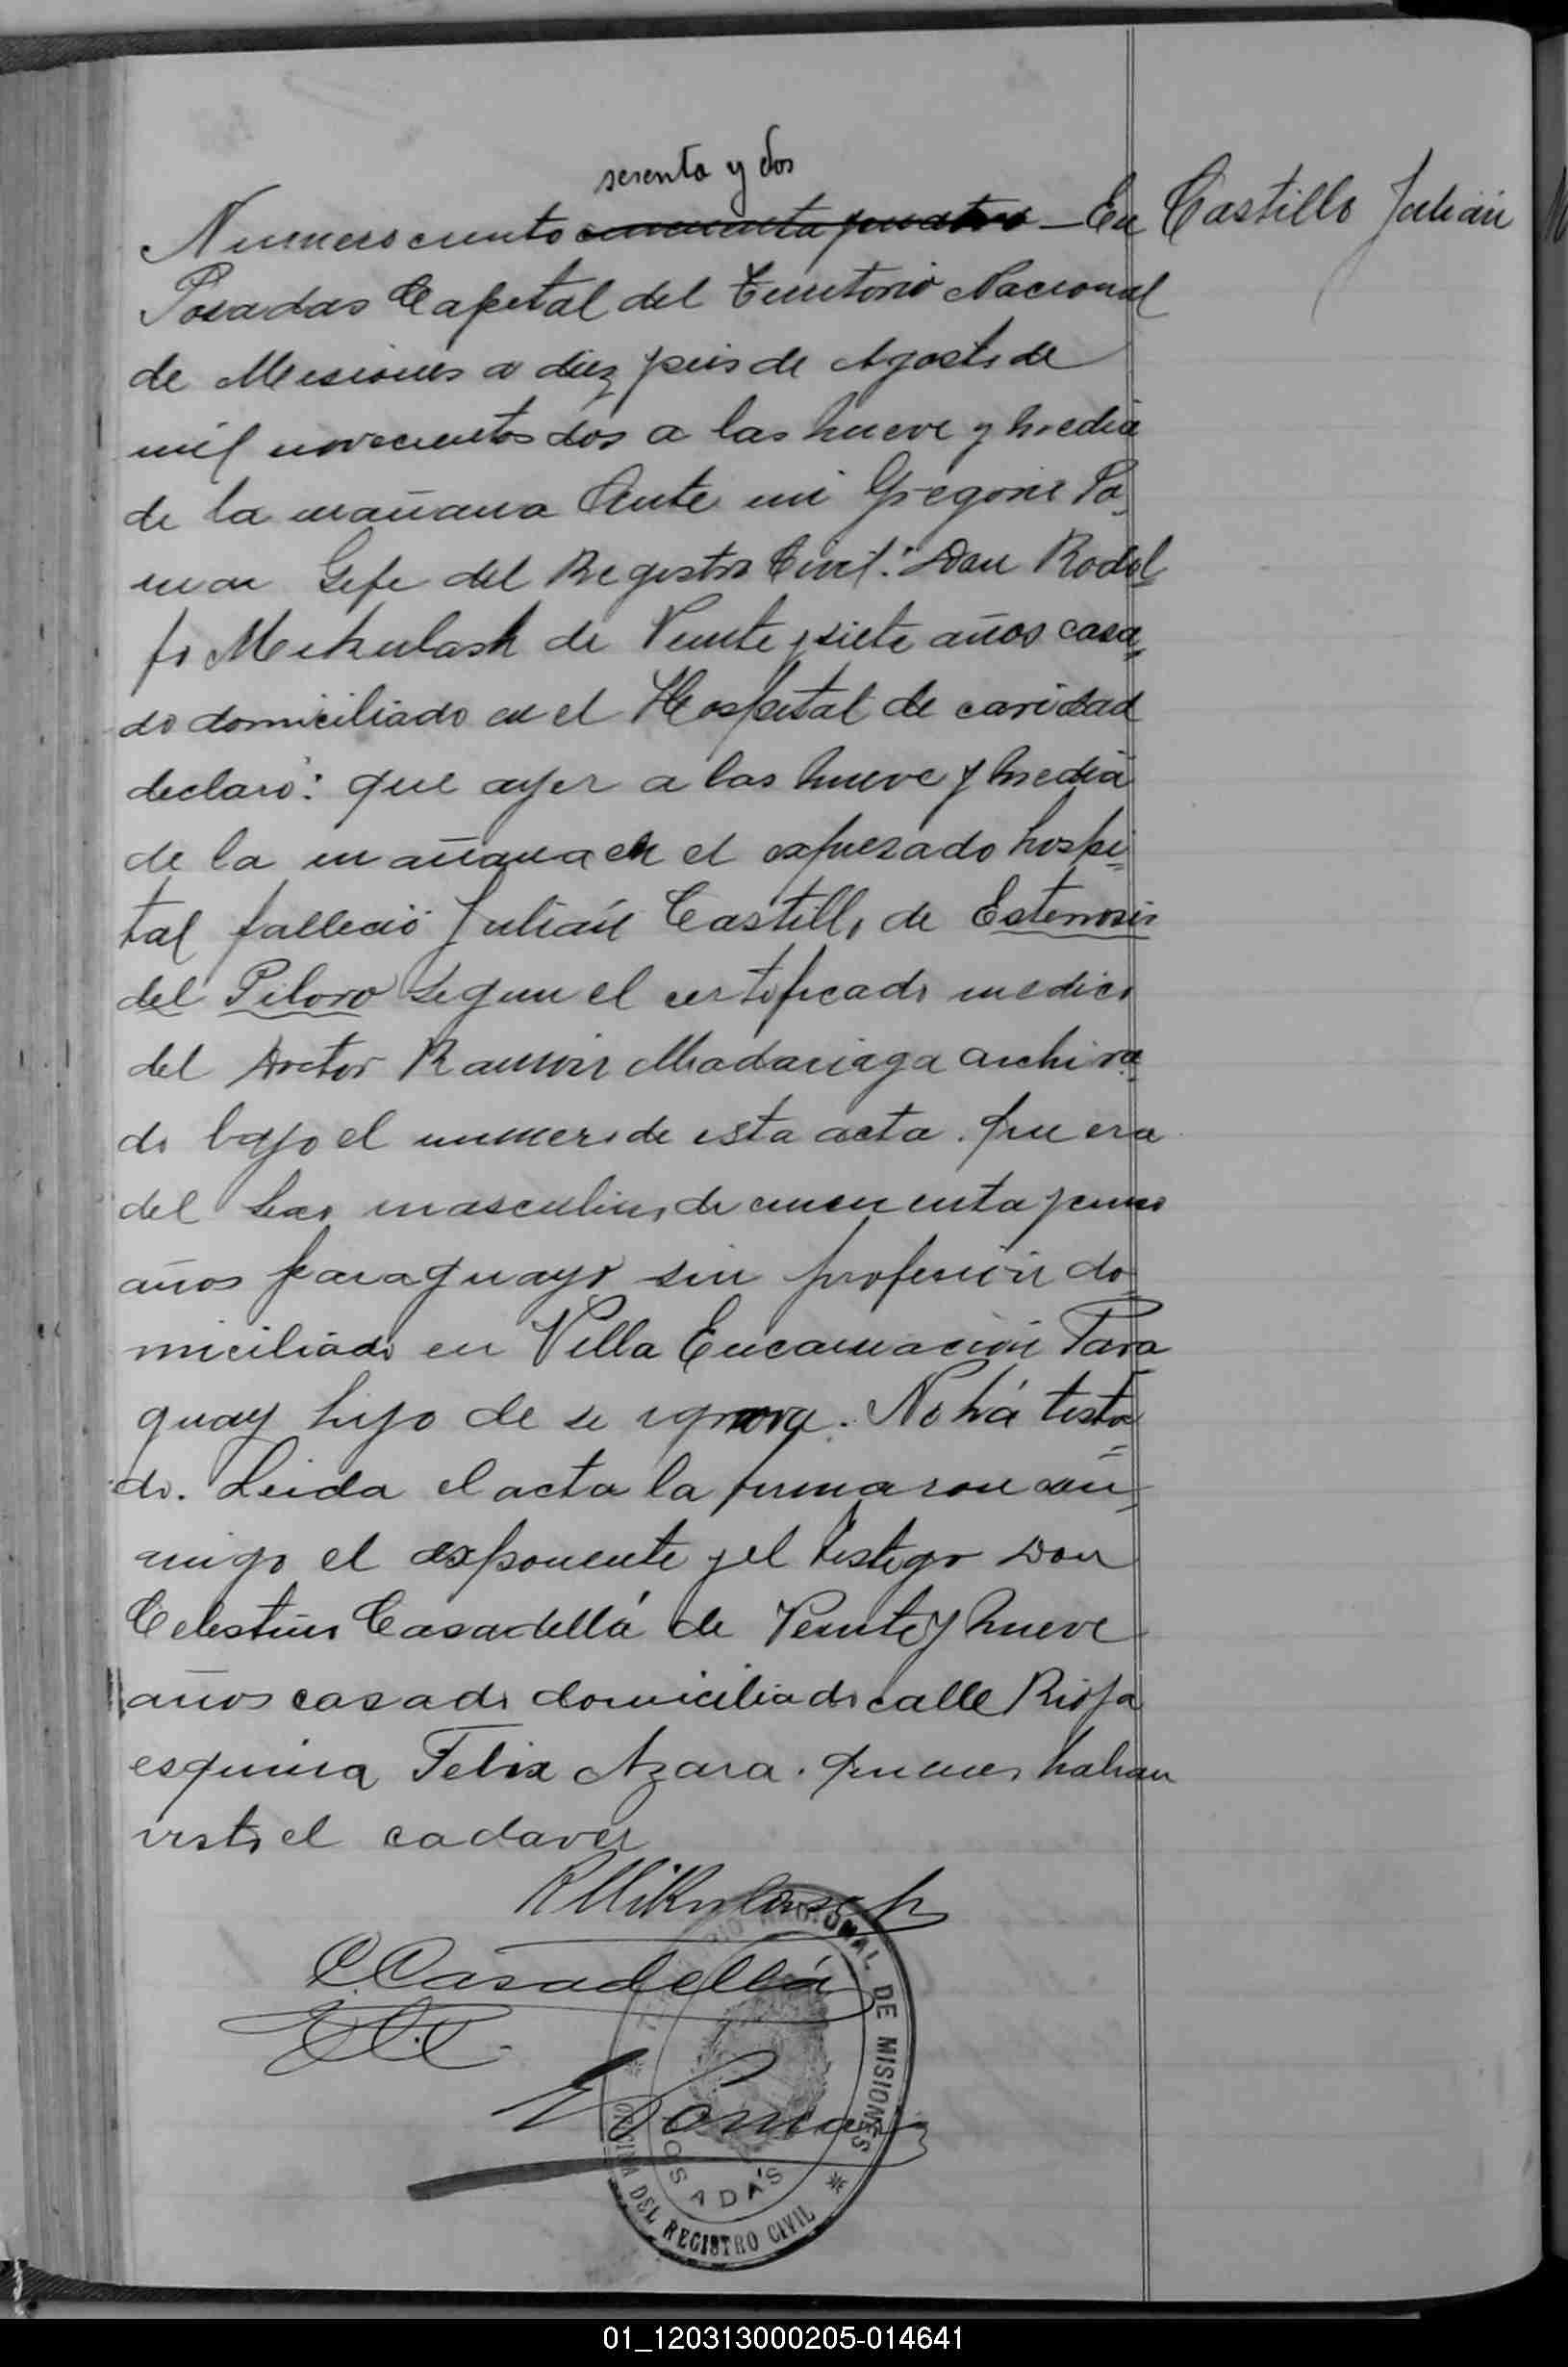 sesenta y dos
Numero ciento cincuenta y cuatro — En
Castillo Julián
Posadas Capital del Territorio Nacional
de Misiones a diez y seis de Agosto de
mil novecientos dos a las nueve y media
de la mañana Ante mi Gregorio Po-
mar Gefe del Registro Civil: Don Rodol-
fo Mikulash de Veinte y siete años casa-
do domiciliado en el Hospital de caridad
declaró: que ayer a las nueve y media
de la mañana en el espresado hospi-
tal falleció Julián Castillo de Estenosis
del Piloro segun el certificado medico
del Doctor Ramón Madariaga archiva-
do bajo el numero de esta acta. Que era
del sexo masculino, de cincuenta y cinco
años paraguayo sin profesión do-
miciliado en Villa Encarnación Para-
guay hijo de se ignora. No há testa-
do. Leida el acta la firmaron con-
migo el exponente y el testigo Don
Celestino Casadellá de Veinte y nueve
años casado domiciliado calle Rioja
esquina Felix Azara. quienes habian
visto el cadaver
R Mikulasch
C. Casadellá
Pomar
NACIONAL DE MISIONES
POSADAS
OFICINA DEL REGISTRO CIVIL
01_120313000205-014641